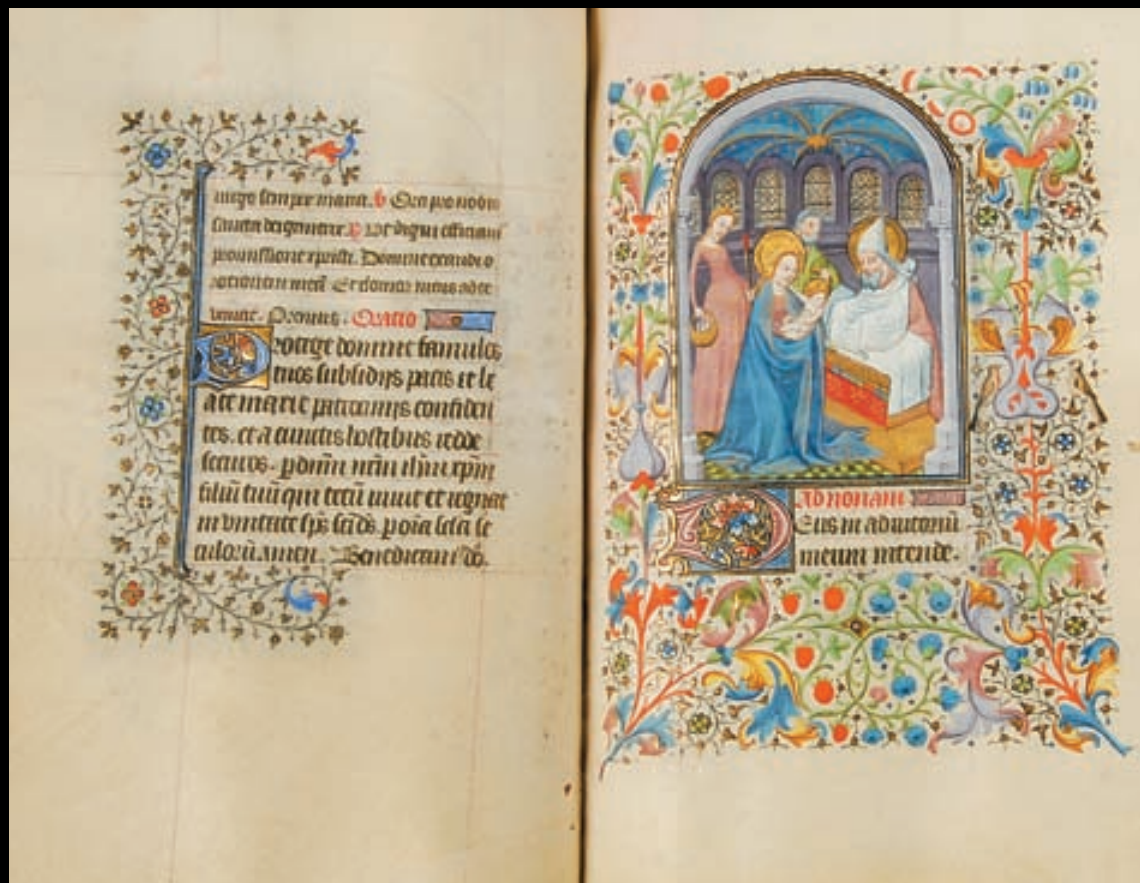 uirgo semper maria. v Ora pro nobis
sancta dei genitrix. R Ut digni efficiam
promissione xpristi. Domine exaudi o
rationem meā. Et clamor meus ad te
ueniat. Oremus. Oratio
Protege domine famulos
tuos subsidijs pacis et be
ate marie patrocinijs confiden
tes. et a cunctis hostibus redde
securos. p dnm̄ nr̄m ih̄m xp̄m
filiū tuū qui tecū uiuit et regnat
in unitate sp̄s sc̄i ds. p oīa sc̄la se
culorū amen. Benedicam' dō.
Ad nonam
Deus in adiutoriū
meum intende.